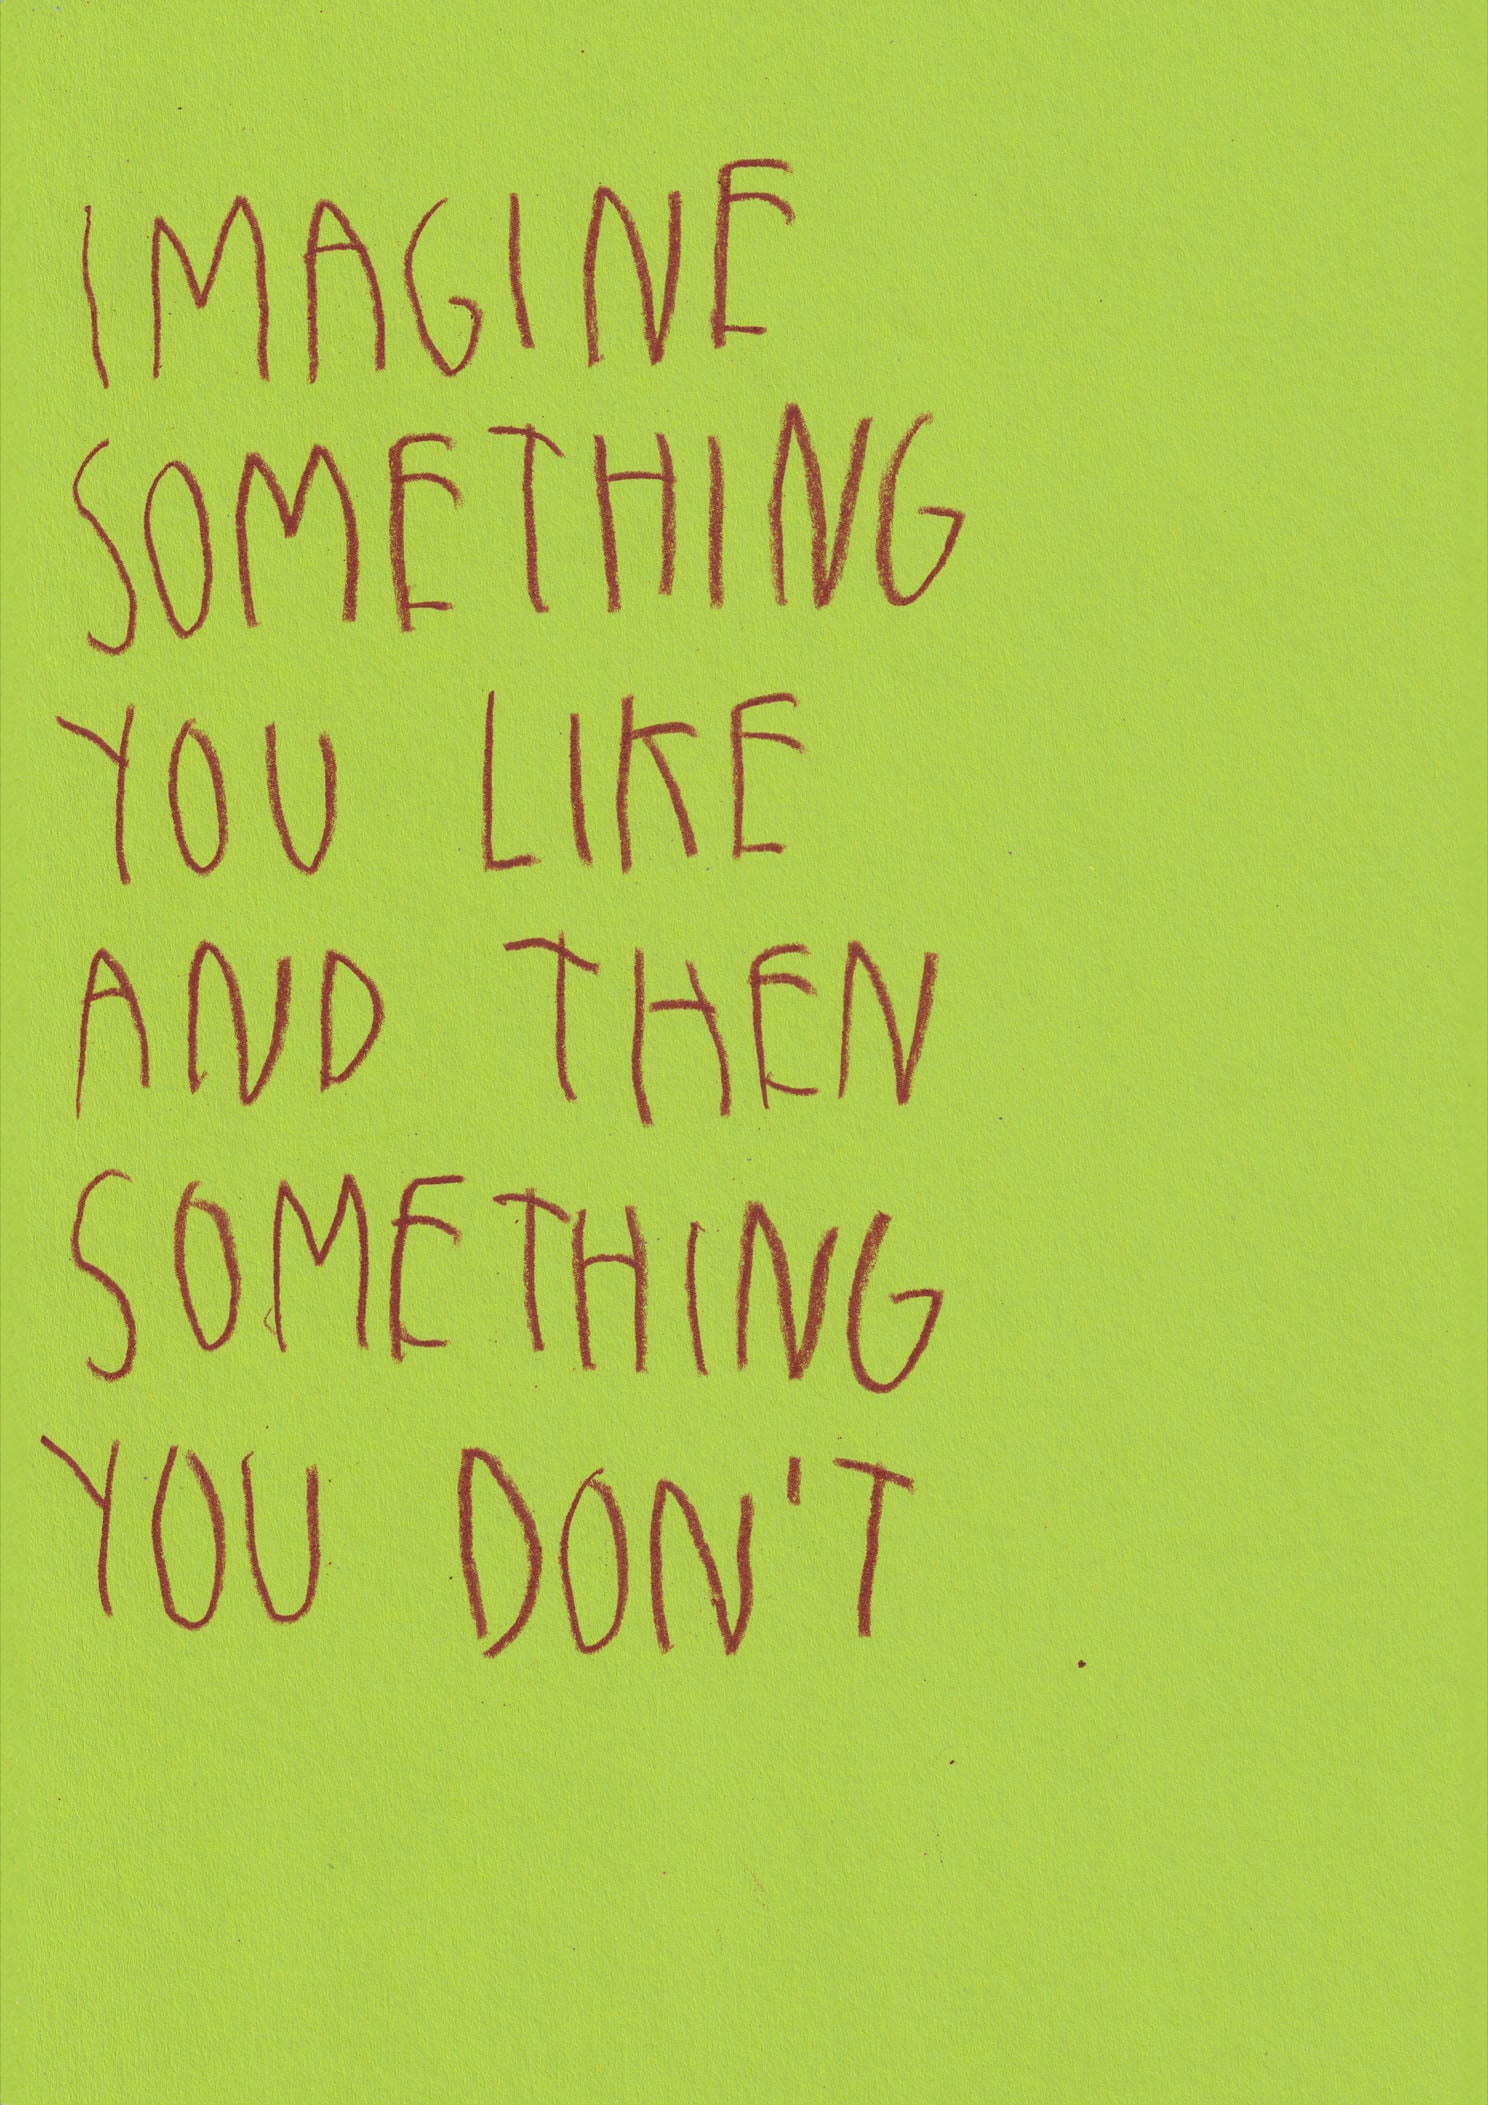 IMAGINE
SOMETHING
YOU LIKE
AND THEN
SOMETHING
YOU DON'T